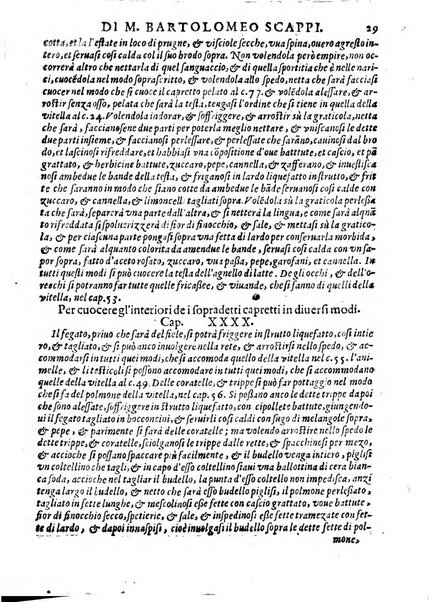 DI M. BARTOLOMEO SCAPPI. 29
cotta, et la l'estate in loco di prugne, & visciole secche, uua spina, ouero agresto in-
tero, et seruasi cosi calda col il suo brodo sopra. Non volendola però empire, con
la medesima compositione fatta di quel sanguaccio, & di quella sportitia netta
nieri, cuocédola nel modo soprascritto, & volendola allo spedo, netta che sarà facciasi
cuocere nel modo che si cuoce il capretto pelato al c. 77. & volendola alessare, &
arrostir senza osso, pelata che sarà la testa, tengasi l'ordine che si tiene in quella di
vitella al c. 24. Volendola indorar, & soffriggere, & arrostir sù la graticola, netta
che sarà, faccianosene due parti per poterla meglio nettare, & vniscanosi le dette
due parti insieme, & faccianosi perlessare, & perlessate che sarāno, cauinosi dal bro
do, et lascinosi rifreddare, et habbiasi vna cōpositione d'oue battute, et cascio, et pā
grattato, & herbicine battute, zuccaro, pepe, cannella, & zafferano, & inuestisca
nosi ambedue le bande della testa, & friganosi in lardo liquefatto, o in strutto, & frit
te che saranno in modo che sia cotto da ambedue le bande seruanosi cosi calde con
zuccaro, & cannella, & limoncelli tagliati sopra. Volédola sù la graticola perlessa
ta che sarà, separerà vna parte dall'altra, & si netterà la lingua, & come sarà alqnā
to rifreddata si spoluerizzerà di fior di finocchio, & sale, & mettasi sù la gratico-
la, & per ciascuna parte pongasi sopra vna fetta di lardo per conseruarla morbida, &
come sarà alquanto colorita da ambedue le bande, seruasi cosi calda con vn sal-
samento sopra fatto d'aceto rosato, zuccaro, vua passa, pepe, garofani, et cannella. In
tutti questi modi si può cuocere la testa dell'agnello di latte. De gli occhi, & dell'o-
recchi si potranno far tutte quelle fricassee, & viuande, che si fanno di quelli della
vitella, nel cap. 53.
Per cuocere gl'interiori de i sopradetti capretti in diuersi modi.
Cap. XXXX.
Il fegato, priuo che sarà del fiele, si potrà friggere in strutto liquefatto, cosi intie
ro, & tagliato, & si può anco inuolgere nella rete, & arrostirsi nello spedo, & ac-
commodarsi in tutti i modi, che si accomoda quello della vitella nel c. 55. L'ani-
melle, & li testicoli si possono accommodare in tutti i modi, che s'accommodano
quelle della vitella al c. 49. Delle coratelle, & trippe si può far pottaggio nel mo
do che si fa del polmone della vitella, nel cap. 56. Si possono anco le dette trippe, &
coratelle, poi che sono alessate, soffriggere in strutto liquefatto, con cipollete battute, giungendo-
ui il fegato tagliato in bocconcini, & seruirli cosi caldi con sugo di melangole sopra,
& pepe, & parimente si farà delle coratelle; ma volendo arrostire nello spedo le
dette trippe, & coratelle, sciolgansi le trippe dalla rete, & spacchinosi per mezo,
& accioche si possano spaccare più facilmente, hauendo il budello vento intiero, piglisi
vn coltellino che tagli, & in capo d'esso coltellino sia vna ballottina di cera bian-
ca soda, accioche nel tagliar il budello, la punta d'esso coltellino non impedisca, anzi
tenga largo il budello, & netto che sarà esso budello piglisi, il polmone perlessato,
tagliato in fette lunghe, & mescolinosi esse fette con cascio grattato, voue battute,
fior di finocchio secco, spetierie, & sale, & inspedinosi esse fette tramezate con fet-
te di lardo, & dapoi innaspisi, ouero inuolgasi il budello sopra le dette fette di pol-
mone,